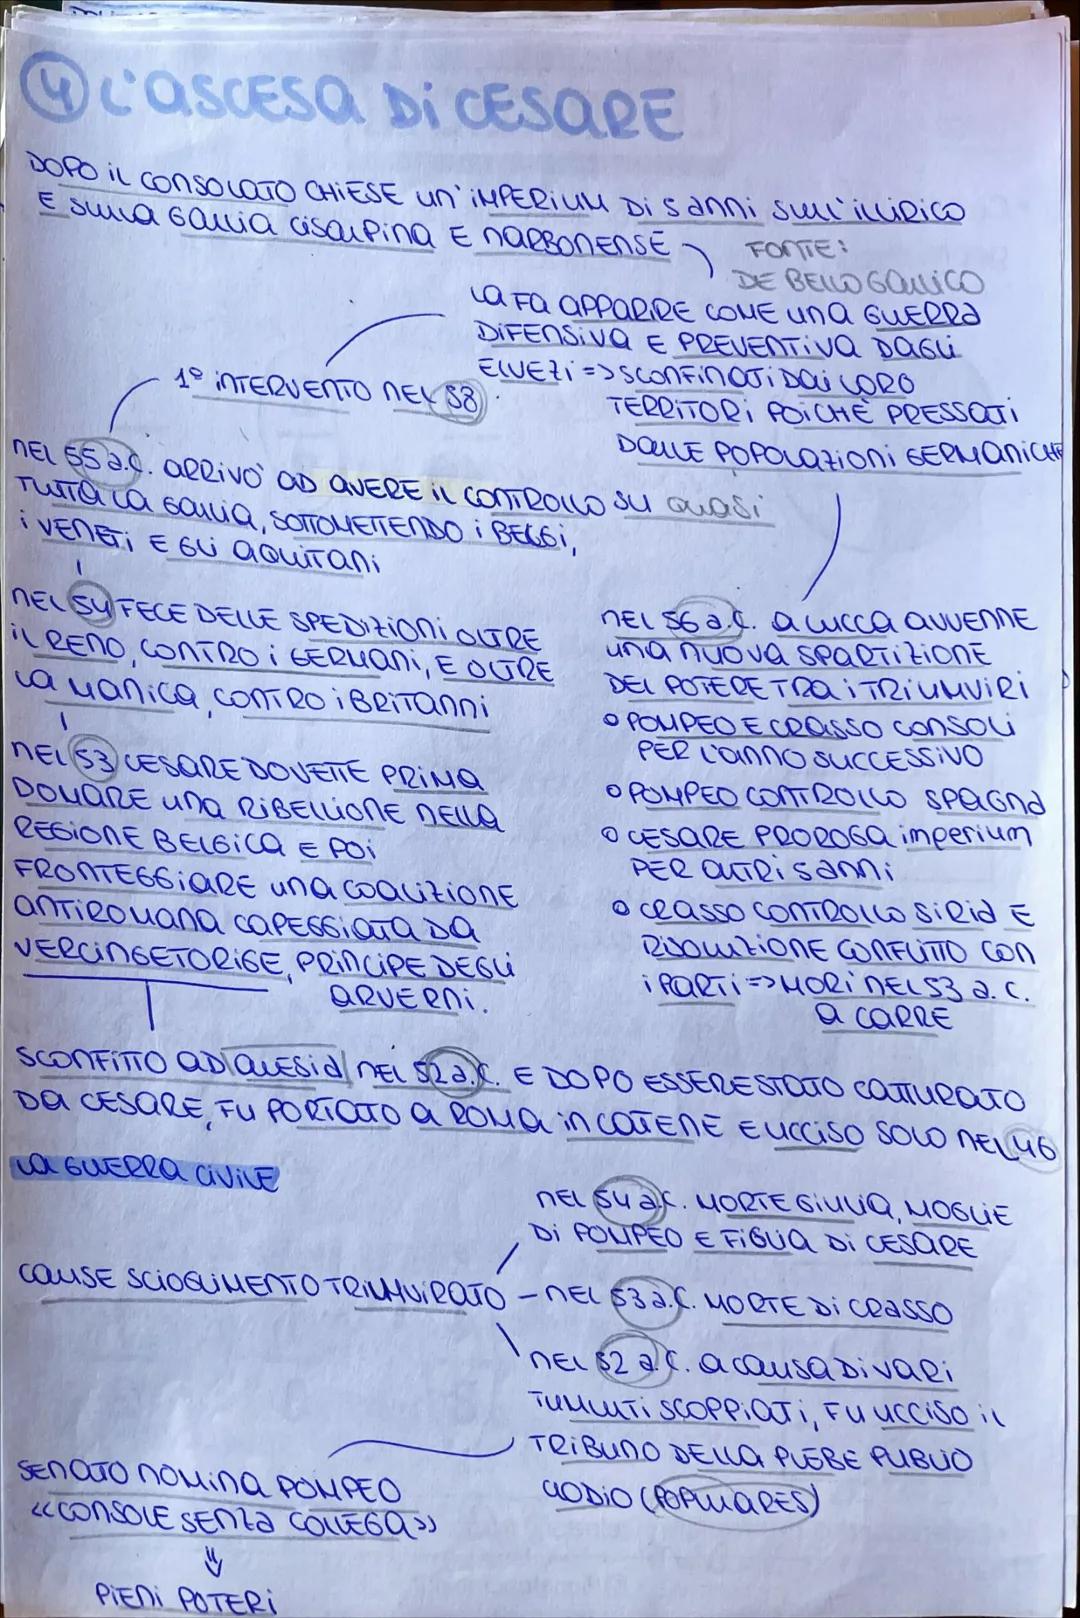 4 L'ASCESA DI CESARE
DOPO IL CONSOLATO CHIESE UN'IMPERIUM DI 5 ANNI SULL'ILLIRICO
E SULLA GALLIA CISALPINA E NARBONENSE
FONTE:
DE BELLO GALLICO
LA FA APPARIRE COME UNA GUERRA
DIFENSIVA E PREVENTIVA DAGLI
ELVEZI => SCONFINATI DAI LORO
TERRITORI POICHÈ PRESSATI
DALLE POPOLAZIONI GERMANICHE
1º INTERVENTO NEL 58
NEL 55 a.C. ARRIVO' AD AVERE IL CONTROLLO SU QUASI
TUTTA LA GALLIA, SOTTOMETTENDO I BELGI,
I VENETI E GLI AQUITANI
NEL 54 FECE DELLE SPEDIZIONI OLTRE
IL RENO, CONTRO I GERMANI, E OLTRE
LA MANICA, CONTRO I BRITANNI
NEL 53 CESARE DOVETTE PRIMA
DOMARE UNA RIBELLIONE NELLA
REGIONE BELGICA E POI
FRONTEGGIARE UNA COALIZIONE
ANTIROMANA CAPEGGIATA DA
VERCINGETORIGE, PRINCIPE DEGLI
ARVERNI.
NEL 56 a.C. A LUCCA AVVENNE
UNA NUOVA SPARTIZIONE
DEL POTERE TRA I TRIUMVIRI
o POMPEO E CRASSO CONSOLI
PER L'ANNO SUCCESSIVO
o POMPEO CONTROLLO SPAGNA
o CESARE PROROGA imperium
PER ALTRI 5 ANNI
o CRASSO CONTROLLO SIRIA E
RISOLUZIONE CONFLITTO CON
I PARTI => MORÌ NEL 53 a.C.
A CARRE
SCONFITTO AD ALESIA NEL 52 a.C. E DOPO ESSERE STATO CATTURATO
DA CESARE, FU PORTATO A ROMA IN CATENE E UCCISO SOLO NEL 46
LA GUERRA CIVILE
CAUSE SCIOGLIMENTO TRIUMVIRATO
NEL 54 a.C. MORTE GIULIA, MOGLIE
DI POMPEO E FIGLIA DI CESARE
- NEL 53 a.C. MORTE DI CRASSO
NEL 52 a.C. A CAUSA DI VARI
TUMULTI SCOPPIATI, FU UCCISO IL
TRIBUNO DELLA PLEBE PUBLIO
CLODIO (POPULARES)
SENATO NOMINA POMPEO
<<CONSOLE SENZA COLLEGA>>
PIENI POTERI